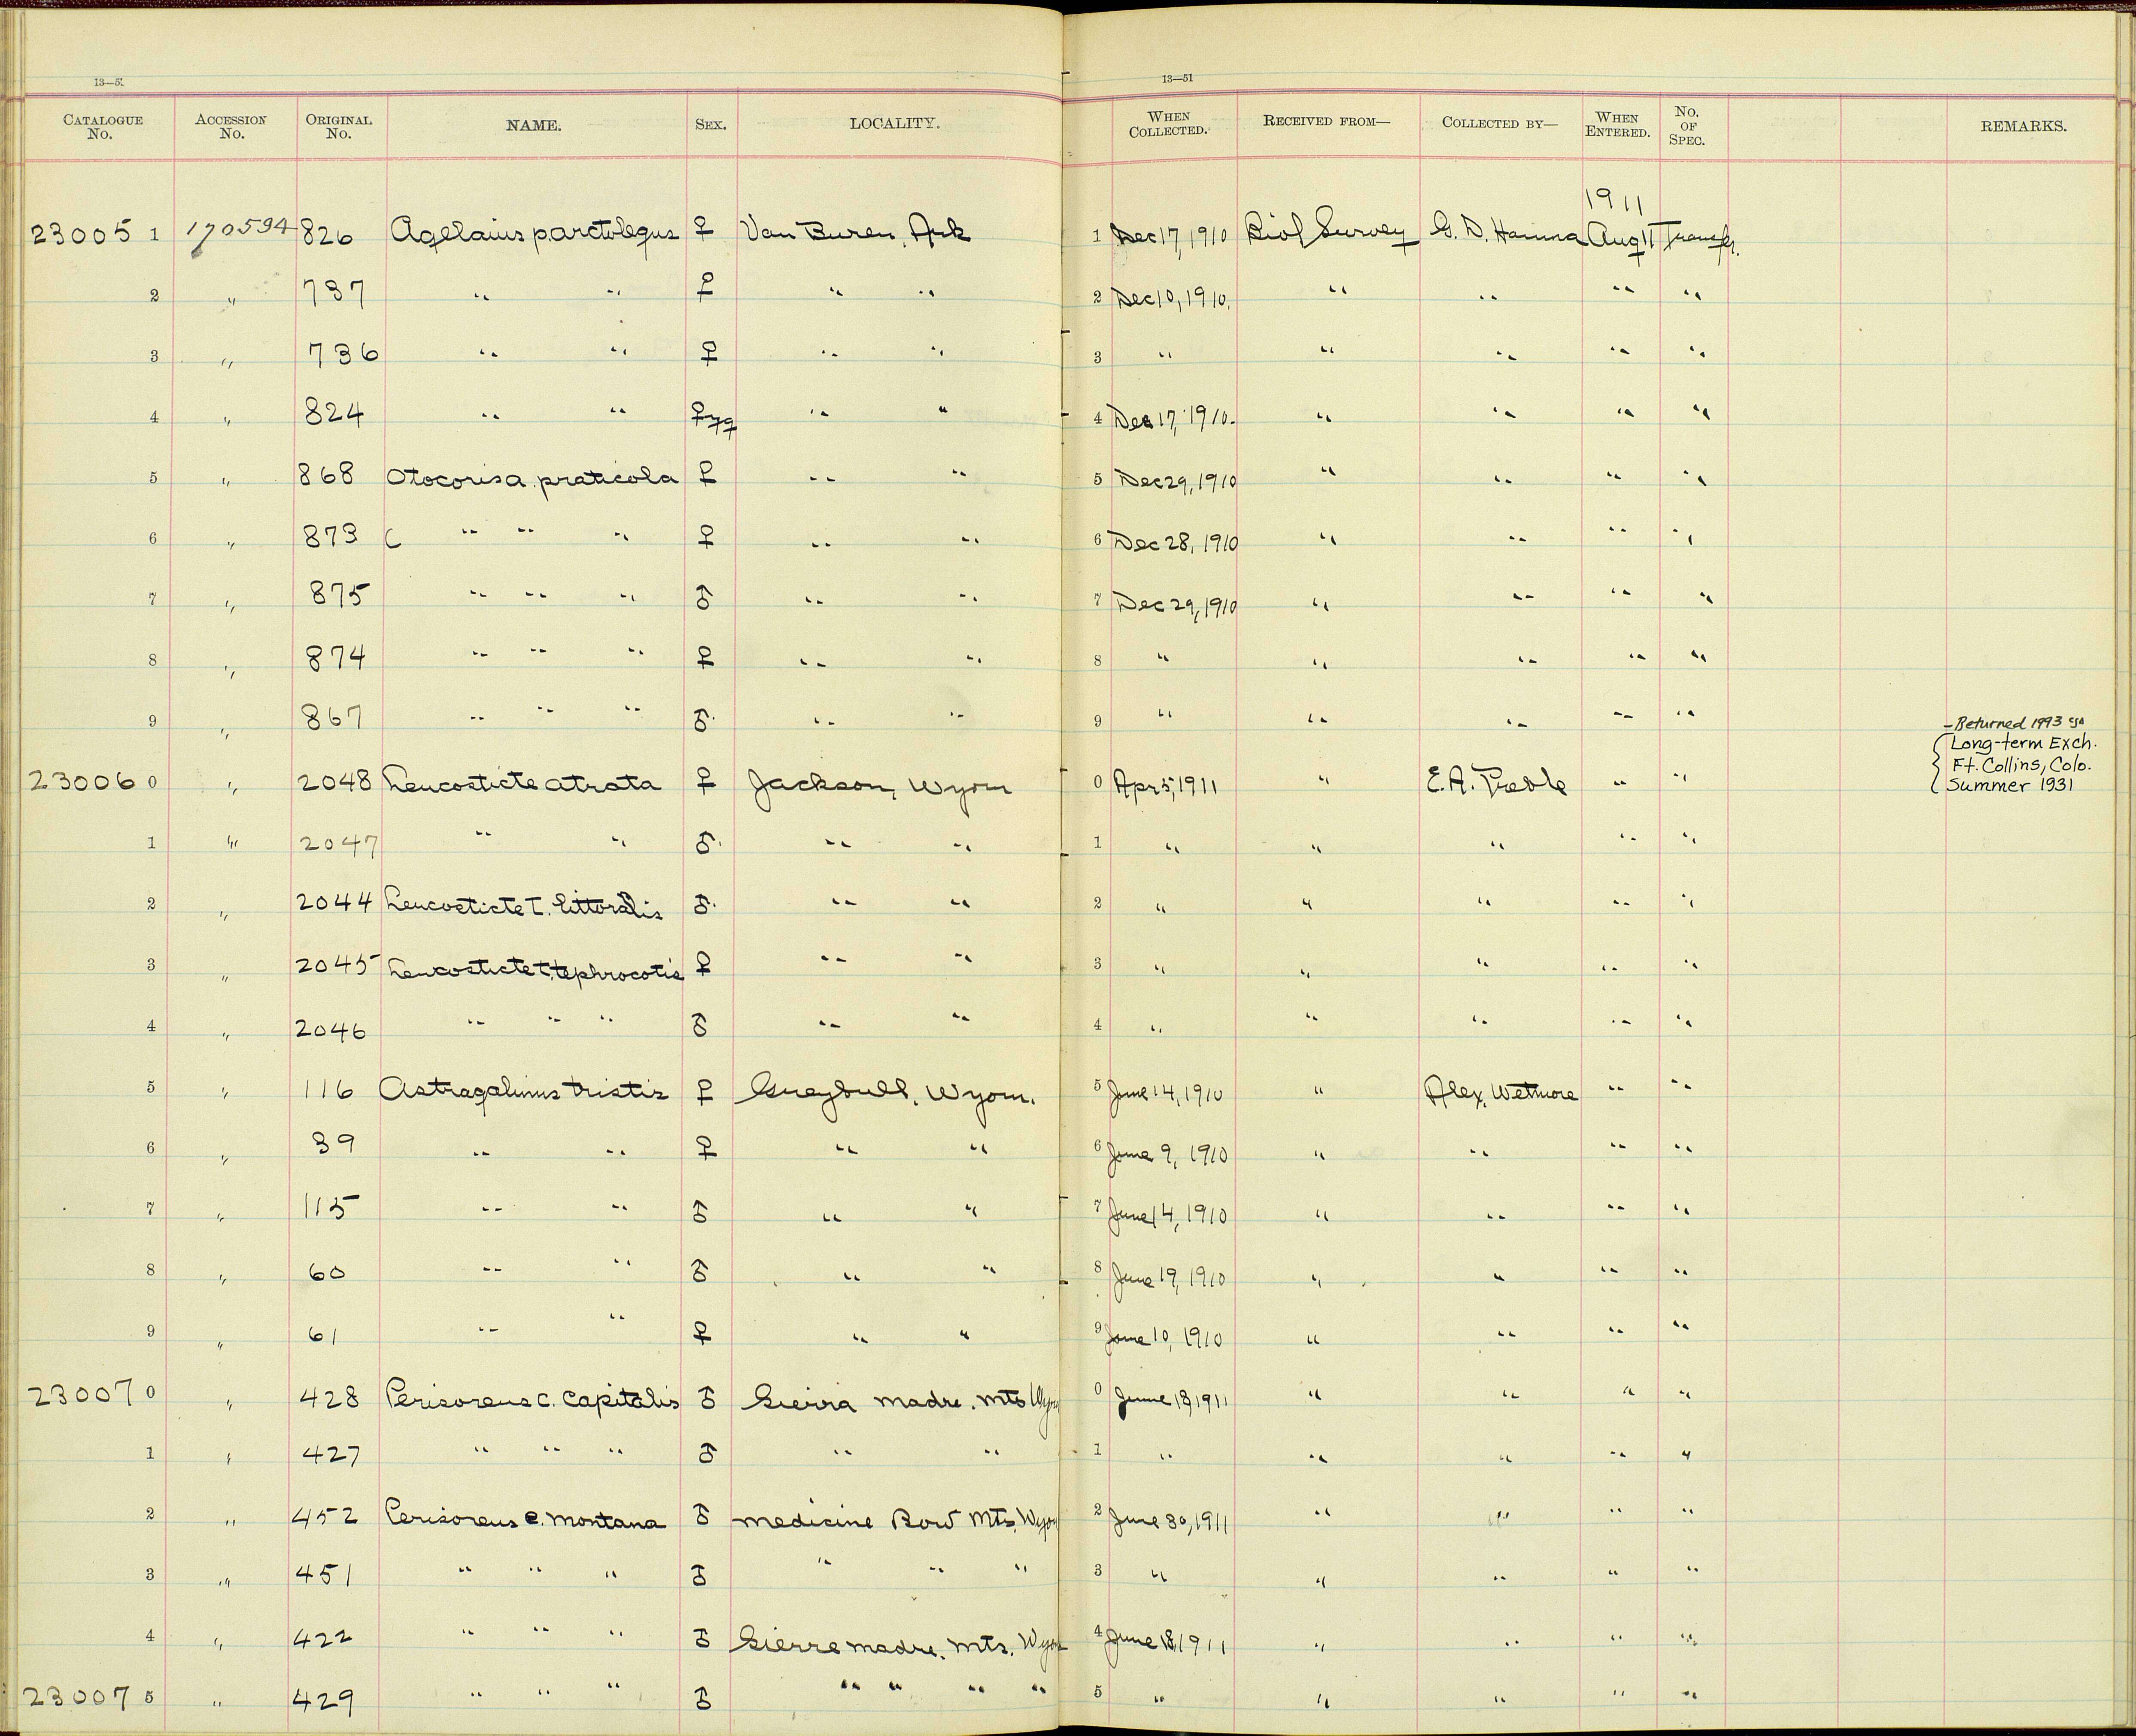 13—5 13—51
CATALOGUE No. ACCESSION No. ORIGINAL No. NAME. SEX. LOCALITY. WHEN COLLECTED. RECEIVED FROM— COLLECTED BY— WHEN ENTERED. No. OF SPEC. REMARKS.
1911
23005 1 170594 826 Agelaius p. arctolegus ♀ Van Buren, Ark 1 Dec 17, 1910 Biol Survey G. D. Hanna Aug 11 Transfr.
2 " 737 " " ♀ " " 2 Dec 10, 1910. " " " "
3 " 736 " " ♀ " " 3 " " " " "
4 " 824 " " ♀ yg " " 4 Dec 17, 1910. " " " "
5 " 868 Otocoris a. praticola ♀ " " 5 Dec 29, 1910 " " " "
6 " 873 " " " ♀ " " 6 Dec 28, 1910 " " " "
7 " 875 " " " ♂ " " 7 Dec 29, 1910 " " " "
8 " 874 " " " ♀ " " 8 " " " " "
9 " 867 " " " ♂ " " 9 " " " " "
23006 0 " 2048 Leucosticte atrata ♀ Jackson, Wyom 0 Apr 5, 1911 " E. A. Preble " "
– Returned 1993
Long-term Exch.
Ft. Collins, Colo.
Summer 1931
1 " 2047 " " ♂ " " 1 " " " " "
2 " 2044 Leucosticte t. littoralis ♂ " " 2 " " " " "
3 " 2045 Leucosticte t. tephrocotis ♀ " " 3 " " " " "
4 " 2046 " " " ♂ " " 4 " " " " "
5 " 116 Astragalinus tristis ♀ Greybull, Wyom. 5 June 14, 1910 " Alex. Wetmore " "
6 " 39 " " ♀ " " 6 June 9, 1910 " " " "
7 " 115 " " ♂ " " 7 June 14, 1910 " " " "
8 " 60 " " ♂ " " 8 June 19, 1910 " " " "
9 " 61 " " ♀ " " 9 June 10, 1910 " " " "
23007 0 " 428 Perisoreus c. capitalis ♂ Sierra Madre. Mts Wyo 0 June 18, 1911 " " " "
1 " 427 " " " ♂ " " 1 " " " " "
2 " 452 Perisoreus c. montana ♂ Medicine Bow Mts, Wyo 2 June 30, 1911 " " " "
3 " 451 " " " ♂ " " " 3 " " " " "
4 " 422 " " " ♂ Sierre Madre. Mts. Wyom 4 June 18, 1911 " " " "
23007 5 " 429 " " " ♂ " " " " 5 " " " " "